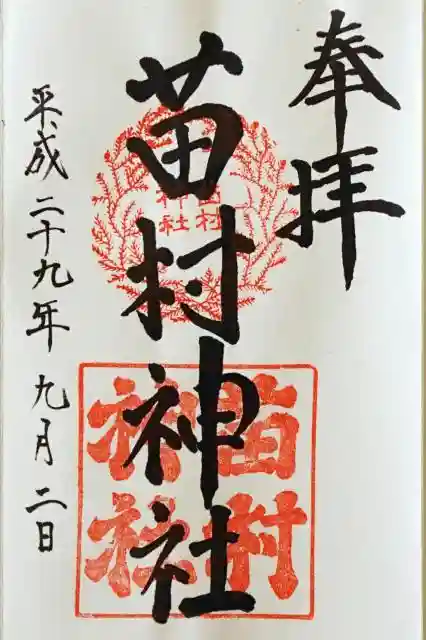 奉拝
苗村神社
苗村
神社
苗村
神社
平成二十九年九月二日